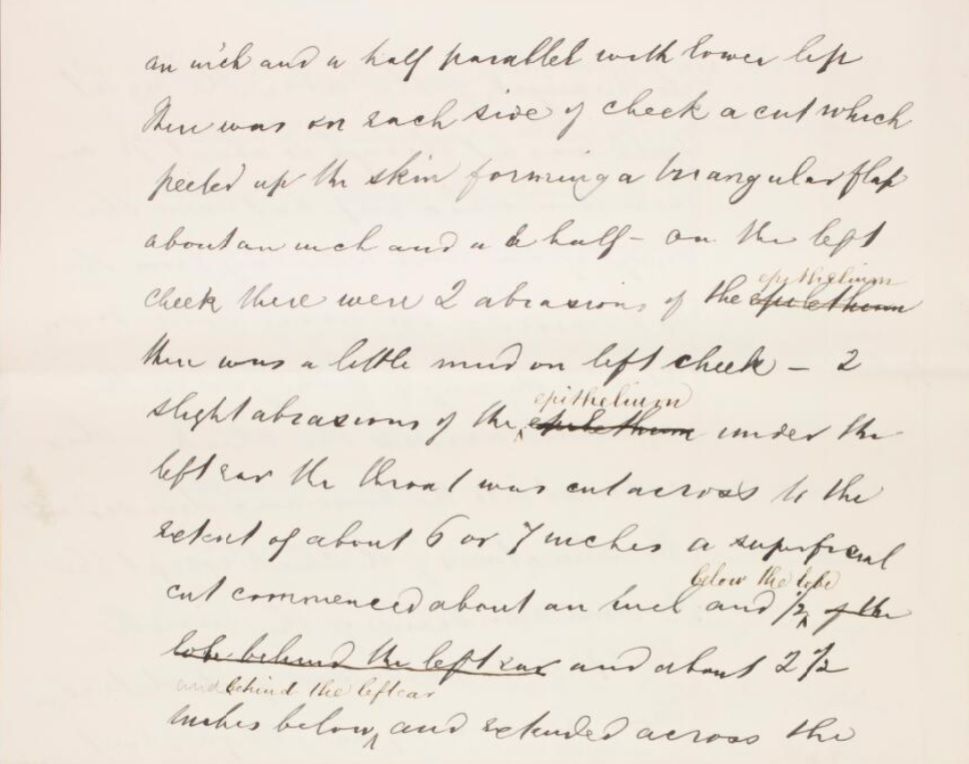 an inch and a half parallel with lower lip
there was on each side of cheek a cut which
peeled up the skin forming a triangular flap
about an inch and a half - on the left
epithelium
cheek there were 2 abrasions of the epilethium
there was a little mud on left cheek - 2
epithelium
slight abrasions of the epilethium under the
left ear the throat was cut across to the
extent of about 6 or 7 inches a superficial
below the lobe
cut commenced about an inch and 1/2 of the
lobe behind the left ear and about 2 1/2
and behind the left ear
inches below and extended across the